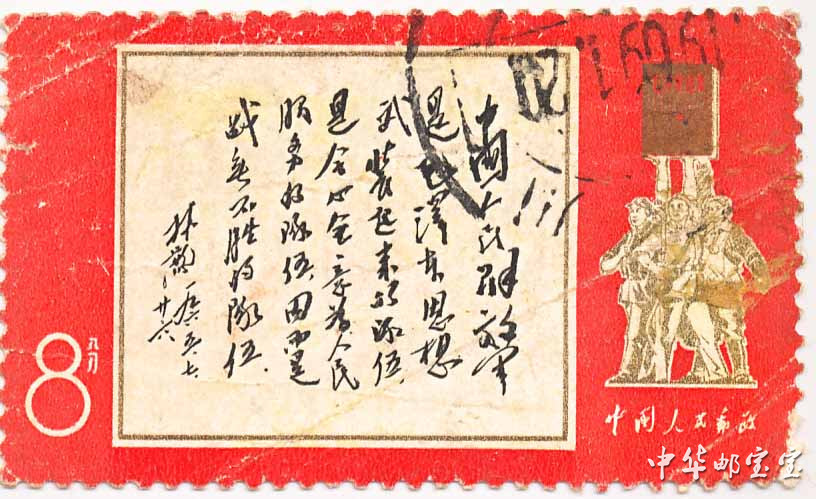 中国人民解放军
是毛泽东思想
武装起来的队伍，
是全心全意为人民
服务的队伍，因而是
战无不胜的队伍。
林彪
一九六五、七、
廿六
8
中国人民邮政
中华邮宝宝